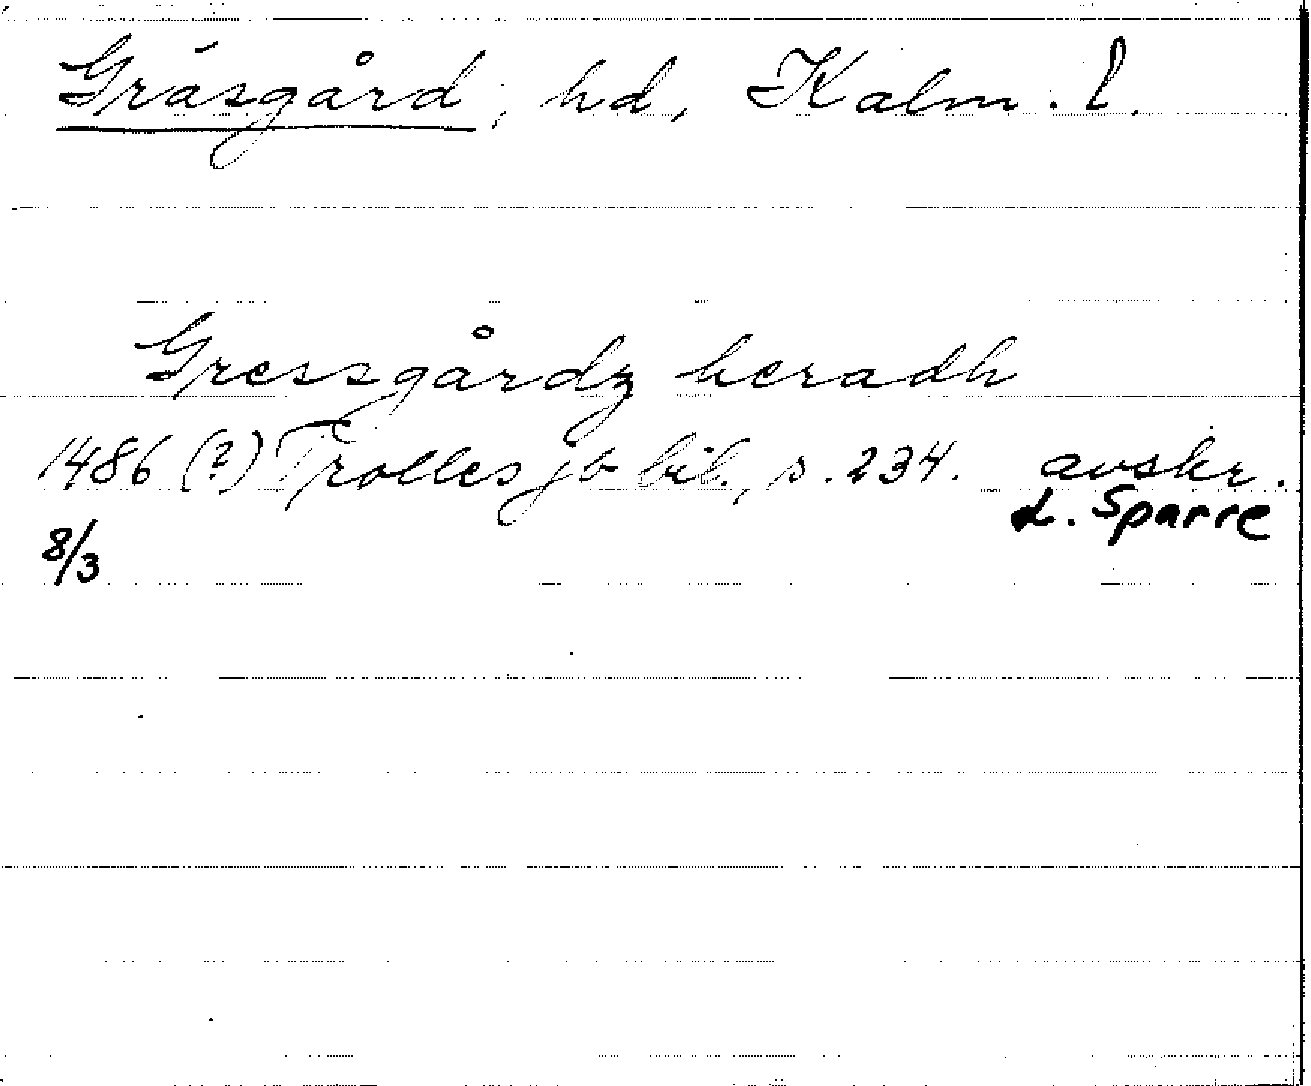 Gräsgård, hd, Kalm. l.
Gressgårdz heradh
1486 (?) Trolles jb bil., s. 234. avskr.
L. Sparre
8/3